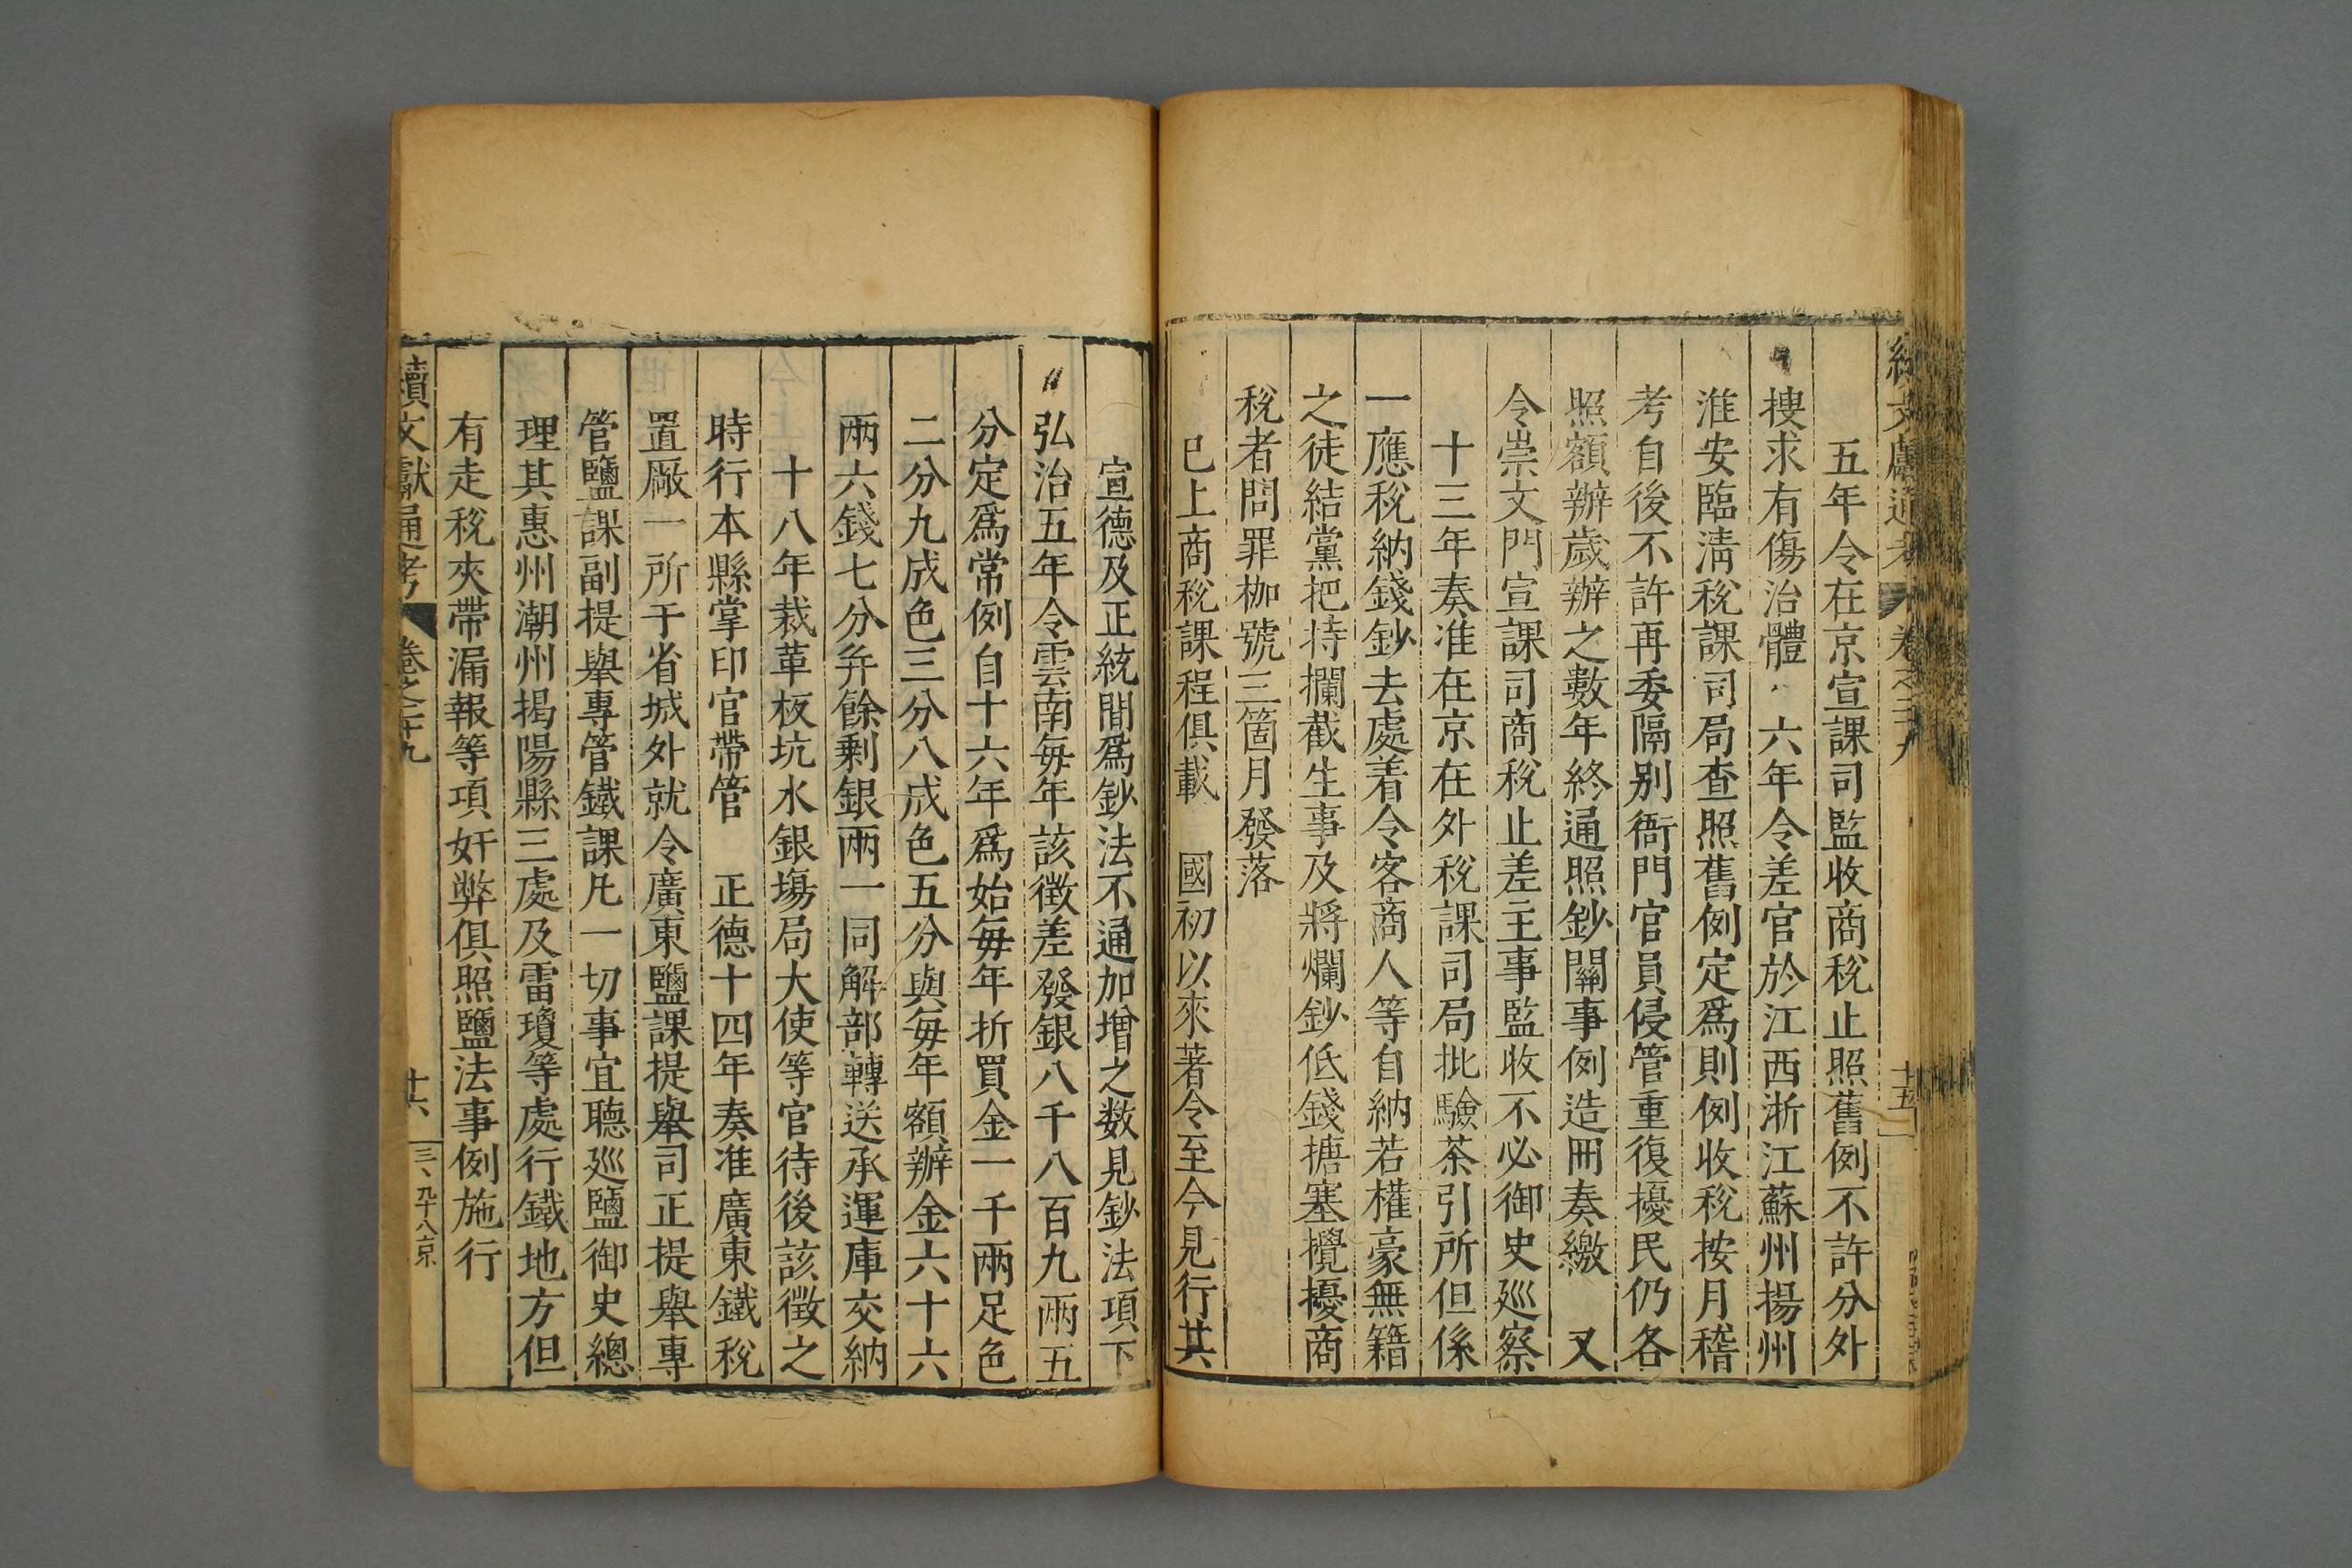 續文獻通考 卷之二十九 十五
五年令在京宣課司監收商稅止照舊例不許分外
搜求有傷治體 六年令差官於江西浙江蘇州揚州
淮安臨淸稅課司局查照舊例定爲則例收稅按月稽
考自後不許再委隔别衙門官員侵管重復擾民仍各
照額辦歲辦之數年終通照鈔關事例造冊奏繳 又
令崇文門宣課司商稅止差主事監收不必御史巡察
十三年奏准在京在外稅課司局批驗茶引所但係
一應稅納錢鈔去處着令客商人等自納若權豪無籍
之徒結黨把持攔截生事及將爛鈔低錢搪塞攪擾商
稅者問罪枷號三箇月發落
已上商稅課程俱載 國初以來著令至今見行其
宣德及正統間爲鈔法不通加增之数見鈔法項下
弘治五年令雲南每年該徵差發銀八千八百九兩五
分定爲常例自十六年爲始每年折買金一千兩足色
二分九成色三分八成色五分與每年額辦金六十六
兩六錢七分并餘剩銀兩一同解部轉送承運庫交納
十八年裁革板坑水銀塲局大使等官待後該徵之
時行本縣掌印官帶管 正德十四年奏准廣東鐵稅
置厰一所于省城外就令廣東鹽課提舉司正提舉專
管鹽課副提舉專管鐵課凡一切事宜聽巡鹽御史總
理其惠州潮州揭陽縣三處及雷瓊等處行鐵地方但
有走稅夾帶漏報等項奸弊俱照鹽法事例施行
續文獻通考 卷之二十九 十六